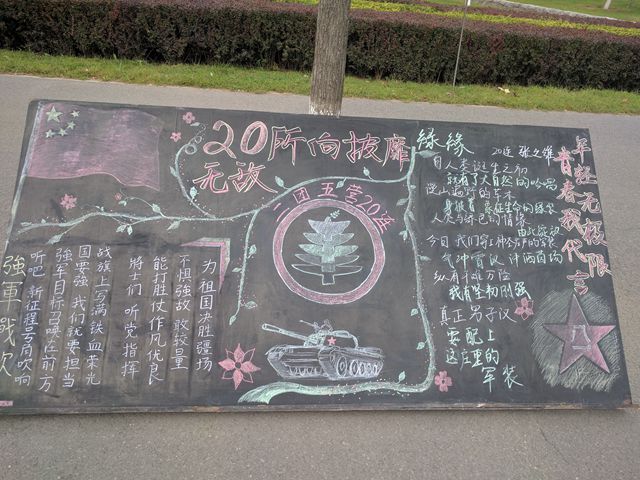 20所向披靡
无敌
二团五营20连
強軍戰歌
听吧 新征程号角吹响
强军目标召唤在前方
国要强 我们就要担当
战旗上写满铁血荣光
将士们 听党指挥
能打胜仗 作风优良
不惧强敌 敢较量
为祖国决胜疆场
绿缘
20连
自人类诞生之初
就有了大自然的吟唱
漫山遍野的草木
象征生命的绿装
人类与绿色的情缘
由此
今日 我们穿上
气冲霄汉
纵有千难万险
我有坚韧刚强
真正男子汉
要配上
这庄重的
军装
年轻无极限
青春我代言